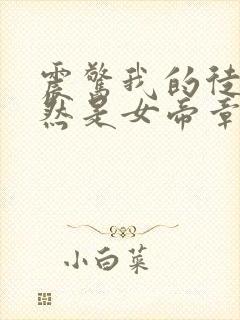 震惊我的徒
然是女帝章
小白菜